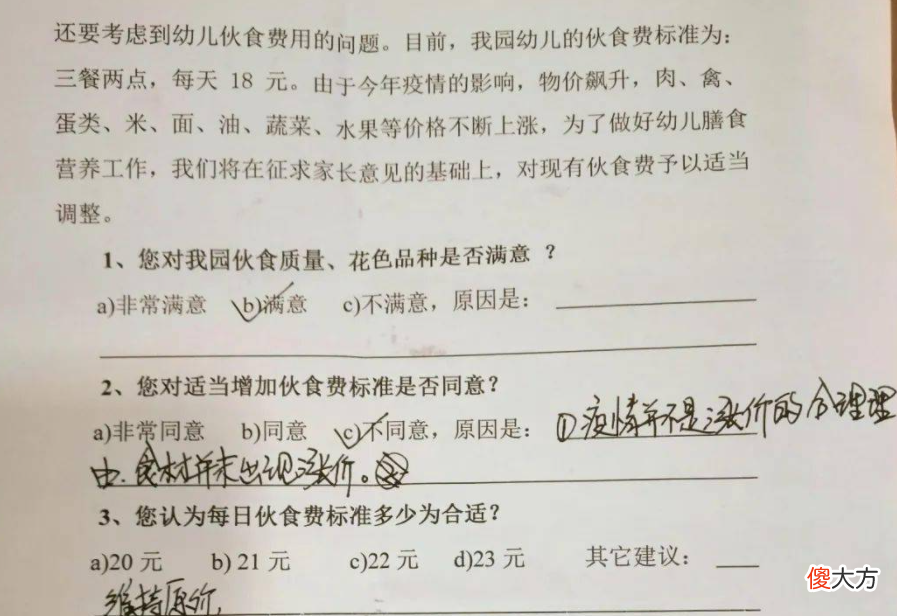 还要考虑到幼儿伙食费用的问题。目前，我园幼儿的伙食费标准为：
三餐两点，每天 18 元。由于今年疫情的影响，物价飙升，肉、禽、
蛋类、米、面、油、蔬菜、水果等价格不断上涨，为了做好幼儿膳食
营养工作，我们将在征求家长意见的基础上，对现有伙食费予以适当
调整。
1、您对我园伙食质量、花色品种是否满意 ？
a)非常满意 b)满意 c)不满意，原因是：
2、您对适当增加伙食费标准是否同意？
a)非常同意 b)同意 c)不同意，原因是： ①疫情并不是涨价的合理理
由.食材并未出现涨价。
3、您认为每日伙食费标准多少为合适？
a)20 元 b) 21 元 c)22 元 d)23 元 其它建议：
维持原价
傻大方